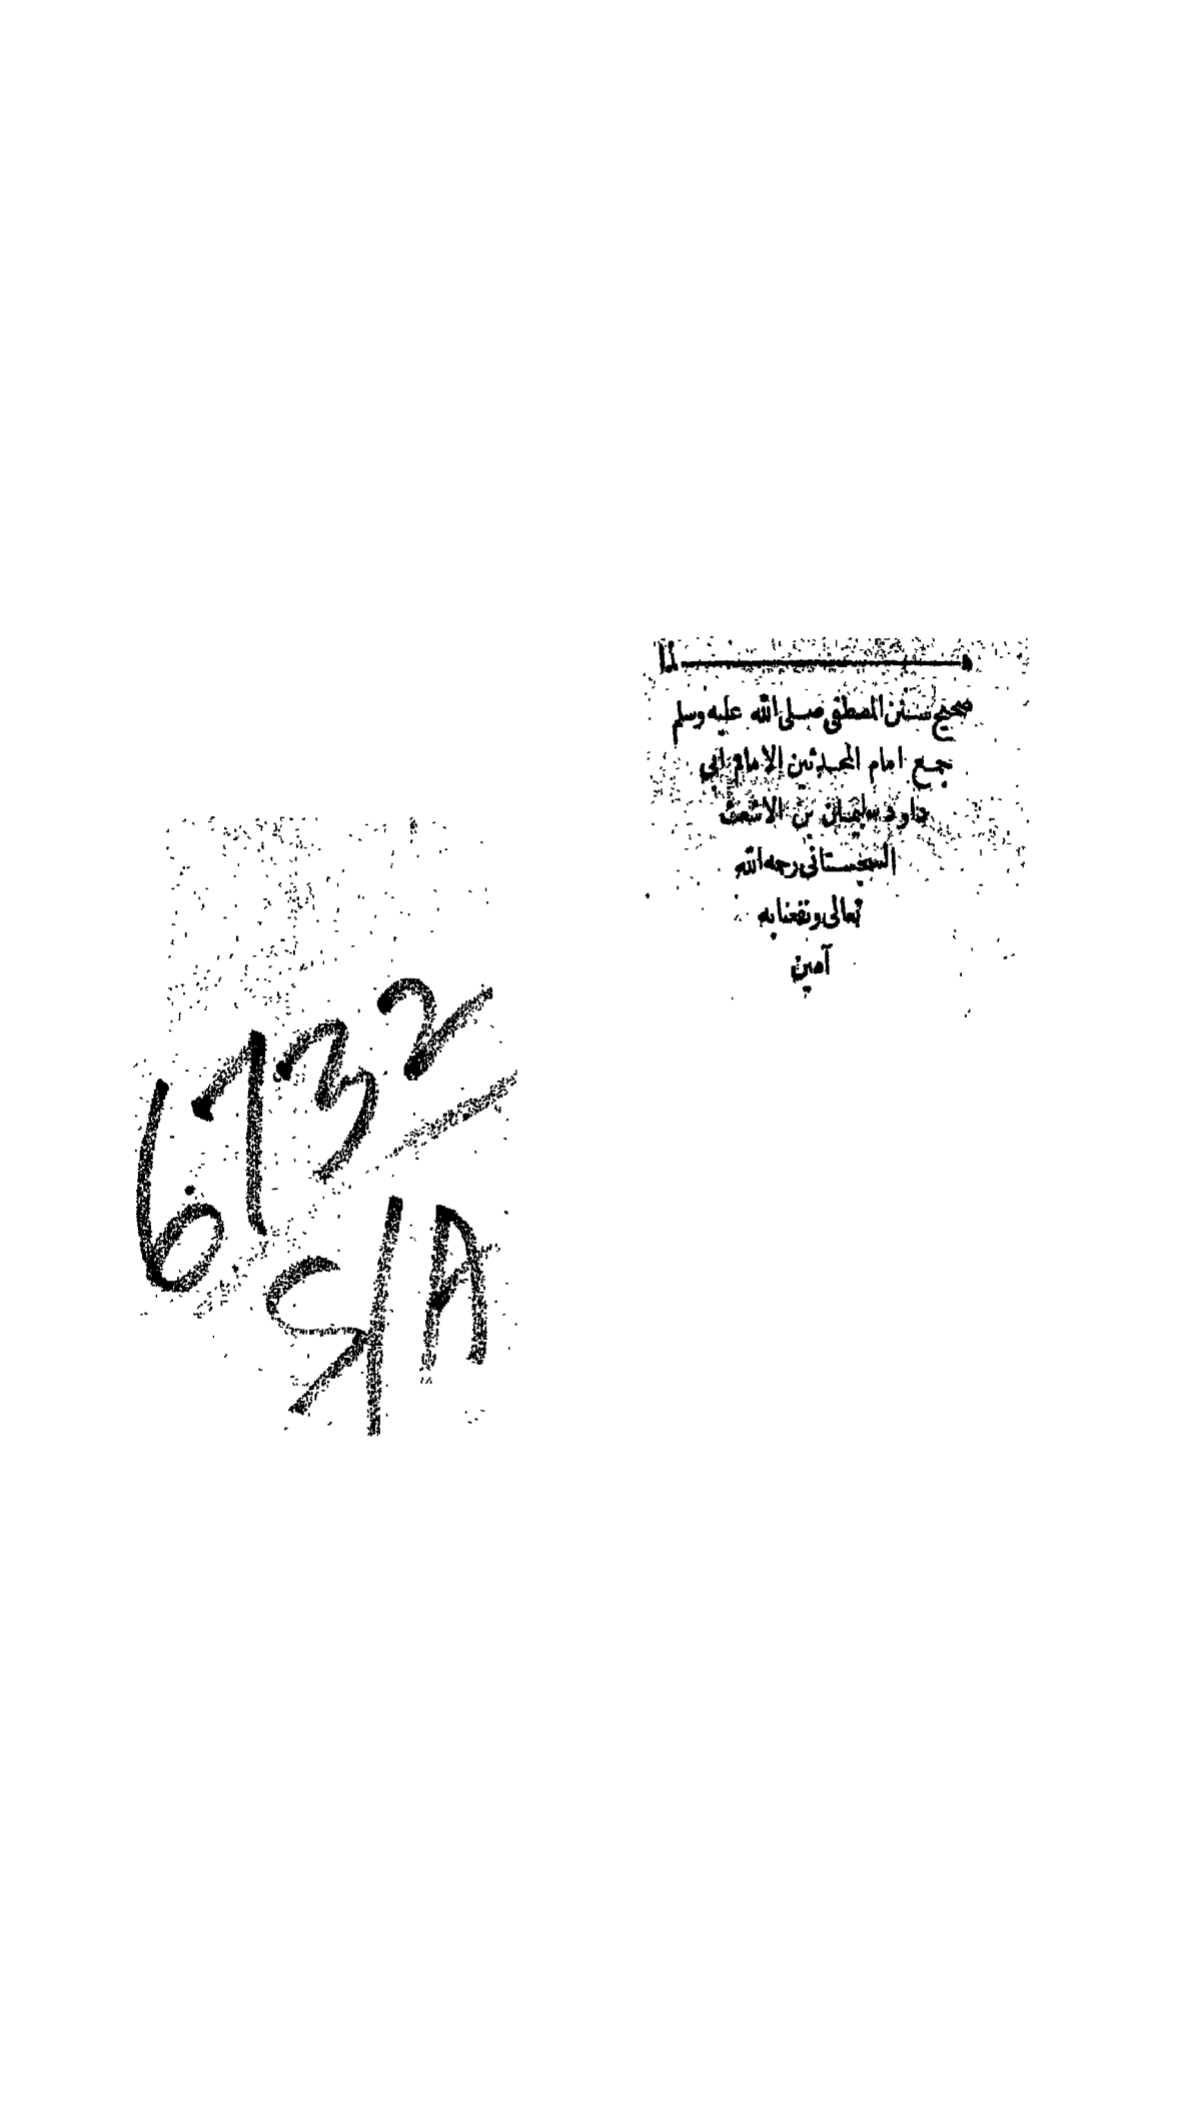 صحيح سنن المصطفى صلى الله عليه وسلم
جمع امام المحدثين الامام ابى
داود سليمان بن الاشعث
السجستانى رحمه الله
تعالى ونفعنا به
آمين
6732
S/A